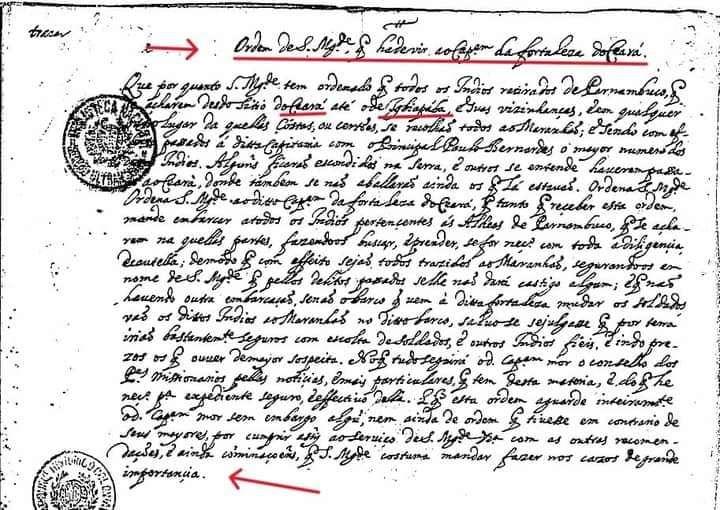 trazer
e Ordem de S. Mg.de q̃ hade vir ao Cap.am da fortaleza do Ceará.
Que por quanto S. Mg.de tem ordenado q̃ todos os Indios retirados de Pernambuco, q̃
acharem desdo Sitio do Ceará até o de Ibiapaba, e suas vizinhenças, e em qualquer
lugar da quellas Costas, ou certões, se recolhão todos ao Maranhão; e Sendo com ef.
passados á ditta Capitania com o Principal Paulo Bernardes o mayor numero dos
Indios. Alguns ficarão escondidos na Serra, e outros se entende haverem passa-
ao Ceará, donde tambem se não abalarão ainda os q̃ Lá estavão. Ordena S. Mg.de
Ordena S. Mg.de ao ditto Cap.am da fortaleza do Ceará, q̃ tanto q̃ receber esta ordem
mande embarcar a todos os Indios pertencentes ás Aldeas de Pernambuco, q̃ se acha-
rem na quellas partes, fazendoos buscar, e prender, se for nec.o com toda a diligencia,
e cautella, demodo q̃ com effeito sejão todos trazidos ao Maranhão, segurandoos em
nome de S. Mg.de q̃ pellos delitos passados selhe não dará castigo algum; e q̃ não
havendo outra embarcação, senão o barco q̃ vem á ditta fortaleza mudar os soldados
vão os dittos Indios ao Maranhão no ditto barco, salvo se sejulgasse q̃ por terra
irião bastantemente seguros com escolta de soldados, e outros Indios fieis, e indo pre-
zos os q̃ ouver demayor sospeita. No q̃ tudo seguirá o d. Cap.am mor o conselho dos
P.es Missionarios pellas noticias, e mais particulares, q̃ tem desta materia, e do q̃ he
nec.o p.a expediente seguro, e effectivo della. E q̃ esta ordem aguarde inteiramte
o d. Cap.am mor sem embargo algũ, nem ainda de ordem q̃ tivesse em contrario de
seus mayores, por cumprir assy ao serviço de S. Mg.de com as outras recomen-
dações, e ainda cominações, q̃ S. Mg.de costuma mandar fazer nos cazos de grande
importancia.